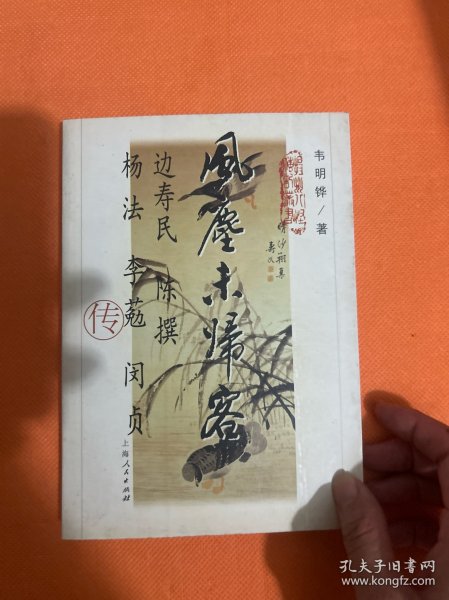 風塵未歸客
韦明铧/著
边寿民 陈撰
杨法 李葂 闵贞
传
寿民
上海人民出版社
孔夫子旧书网
www.kongfz.com